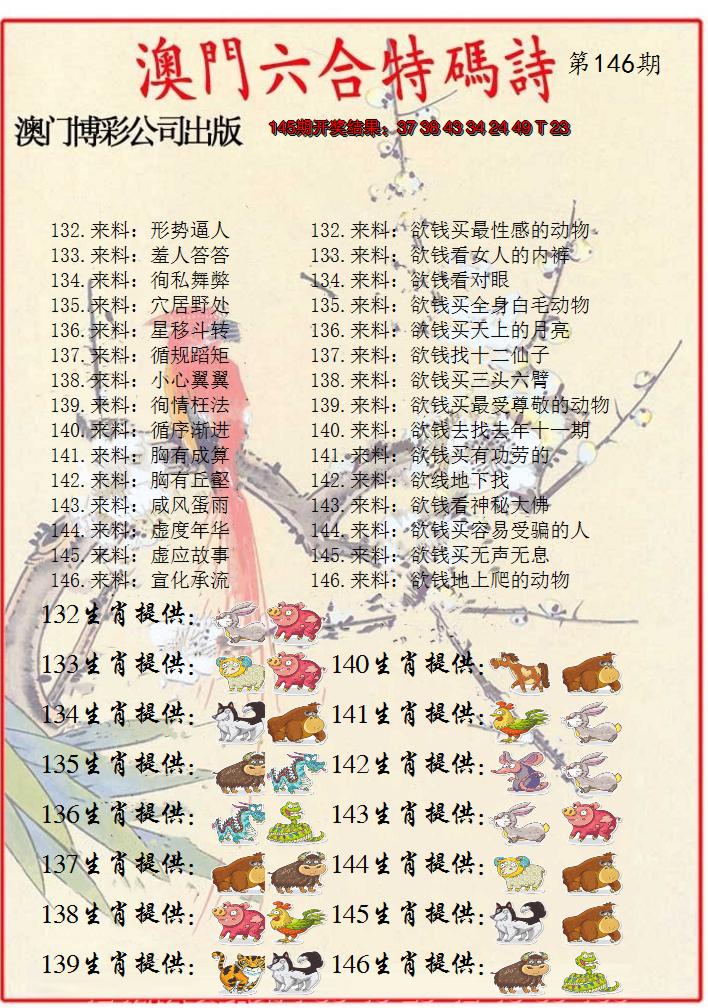 澳門六合特碼詩 第146期
澳门博彩公司出版 145期开奖结果：37 36 43 34 24 49 T 23
132.来料：形势逼人 132.来料：欲钱买最性感的动物
133.来料：羞人答答 133.来料：欲钱看女人的内裤
134.来料：徇私舞弊 134.来料：欲钱看对眼
135.来料：穴居野处 135.来料：欲钱买全身白毛动物
136.来料：星移斗转 136.来料：欲钱买天上的月亮
137.来料：循规蹈矩 137.来料：欲钱找十二仙子
138.来料：小心翼翼 138.来料：欲钱买三头六臂
139.来料：徇情枉法 139.来料：欲钱买最受尊敬的动物
140.来料：循序渐进 140.来料：欲钱去找去年十一期
141.来料：胸有成算 141.来料：欲钱买有功劳的
142.来料：胸有丘壑 142.来料：欲线地下找
143.来料：咸风蛋雨 143.来料：欲钱看神秘大佛
144.来料：虚度年华 144.来料：欲钱买容易受骗的人
145.来料：虚应故事 145.来料：欲钱买无声无息
146.来料：宣化承流 146.来料：欲钱地上爬的动物
132生肖提供：
133生肖提供： 140生肖提供：
134生肖提供： 141生肖提供：
135生肖提供： 142生肖提供：
136生肖提供： 143生肖提供：
137生肖提供： 144生肖提供：
138生肖提供： 145生肖提供：
139生肖提供： 146生肖提供：